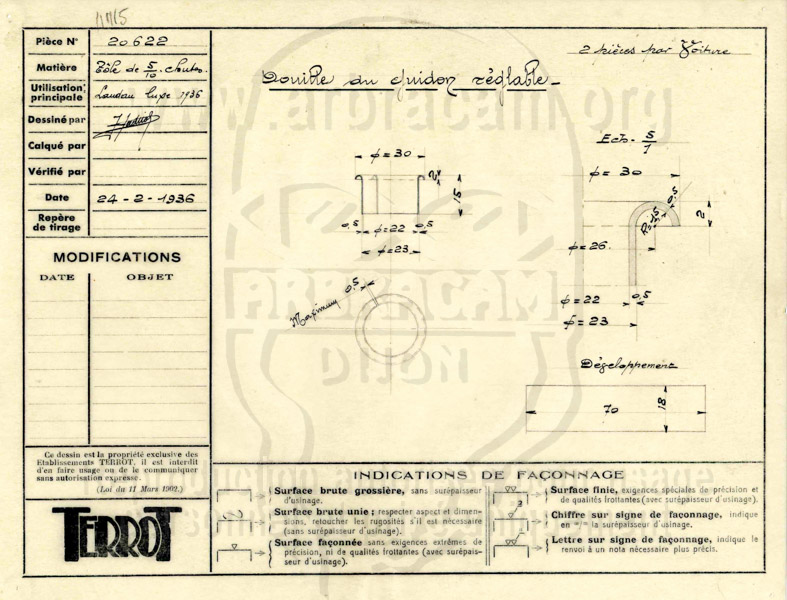 1715
Pièce N° 20622
Matière Tôle de 5/10.
Utilisation principale Landau luxe 1936
Dessiné par
Calqué par
Vérifié par
Date 24-2-1936
Repère de tirage
MODIFICATIONS
DATE OBJET
Ce dessin est la propriété exclusive des
Etablissements TERROT. il est interdit
d'en faire usage ou de le communiquer
sans autorisation expresse.
(Loi du 11 Mars 1902.)
TERROT
2 pièces par Voiture
Douille du guidon réglable
Ech. 5/1
φ = 30
2
15
0,5 φ=22 0,5
φ=23
0,5
Maximum
φ = 30
0,5
2
φ=26
φ = 22 0,5
φ = 23
Développement
70
18
www.arbracam.org
ARBRACAM
DIJON
INDICATIONS DE FAÇONNAGE
Surface brute grossière, sans surépaisseur
d'usinage.
Surface brute unie ; respecter aspect et dimen-
sions, retoucher les rugosités s'il est nécessaire
(sans surépaisseur d'usinage).
Surface façonnée sans exigences extrêmes de
précision, ni de qualités frottantes (avec surépais-
seur d'usinage).
Surface finie, exigences spéciales de précision et
de qualités frottantes (avec surépaisseur d'usinage).
3
Chiffre sur signe de façonnage, indique
en la surépaisseur d'usinage.
Lettre sur signe de façonnage, indique le
renvoi à un nota nécessaire plus précis.